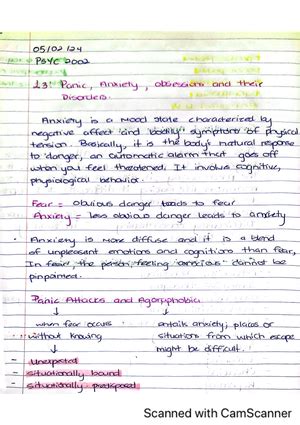 05/02/24
PSYC 2002
L3: Panic, Anxiety, obsessions and their
Disorders.
Anxiety is a Mood state characterized by
negative affect and bodily symptoms of physical
tension. Basically, it is the body's natural response
to danger, an automatic alarm that goes off
when you feel threatened. It involves cognitive,
physiological behavior.
Fear = obvious danger leads to fear
Anxiety = less obvious danger leads to anxiety
• Anxiety is more diffuse and it is a blend
of unpleasant emotions and cognitions than fear,
In fear, the person feeling cannot be
pinpointed.
Panic Attacks and Agoraphobia
↓ ↓
when fear occurs entails anxiety; places or
without knowing situation from which escape
↓ might be difficult.
- Unexpected
- situationally bound
- situationally predisposed
Scanned with CamScanner